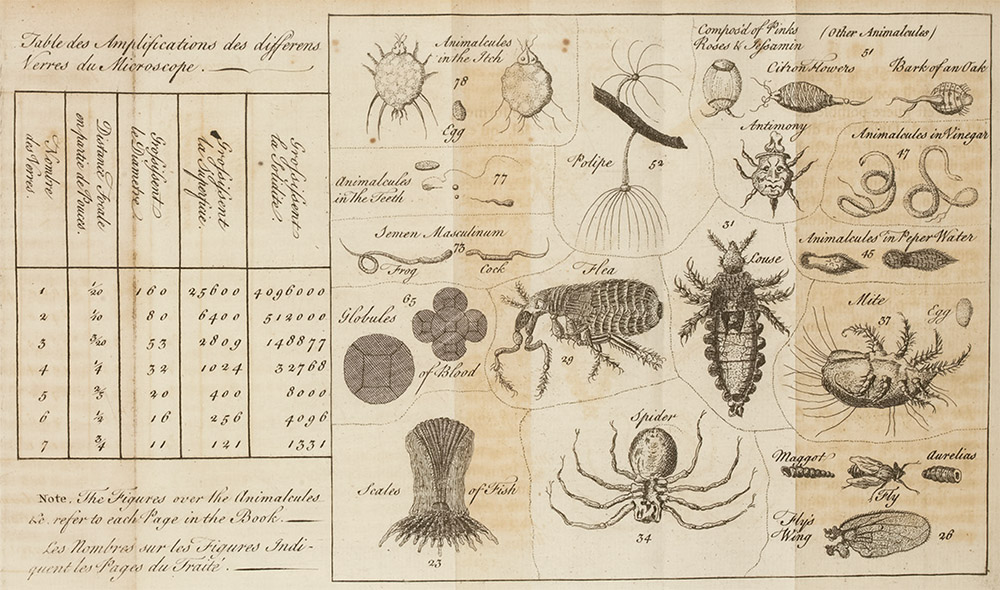 Table des Amplifications des differens
Verres du Microscope.
Nombre des Verres.
Distance Focale en partie de Pouces.
Grossissent le Diametre
Grossissent la Superficie.
Grossissent la Solidite.
1 1/20 160 25600 4096000
2 1/10 80 6400 512000
3 3/20 53 2809 148877
4 1/4 32 1024 32768
5 2/5 20 400 8000
6 1/2 16 256 4096
7 3/4 11 121 1331
Note. The Figures over the Animalcules
&c. refer to each Page in the Book.
Les Nombres sur les Figures Indi-
quent les Pages du Traite.
Animalcules
in the Itch
78
Egg
Animalcules
in the Teeth
77
Semen Masculinum
73
Frog
Cock
65
Globules
of Blood
Scales
of Fish
23
Polipe
52
Flea
29
Spider
34
Compos'd of Pinks
Roses & Jessamin
(Other Animalcules)
51
Citron flowers
Bark of an Oak
Antimony
Animalcules in Vinegar
47
31
Louse
Animalcules in Peper Water
45
Mite
37
Egg
Maggot
Aurelias
Fly
Fly's
Wing
26